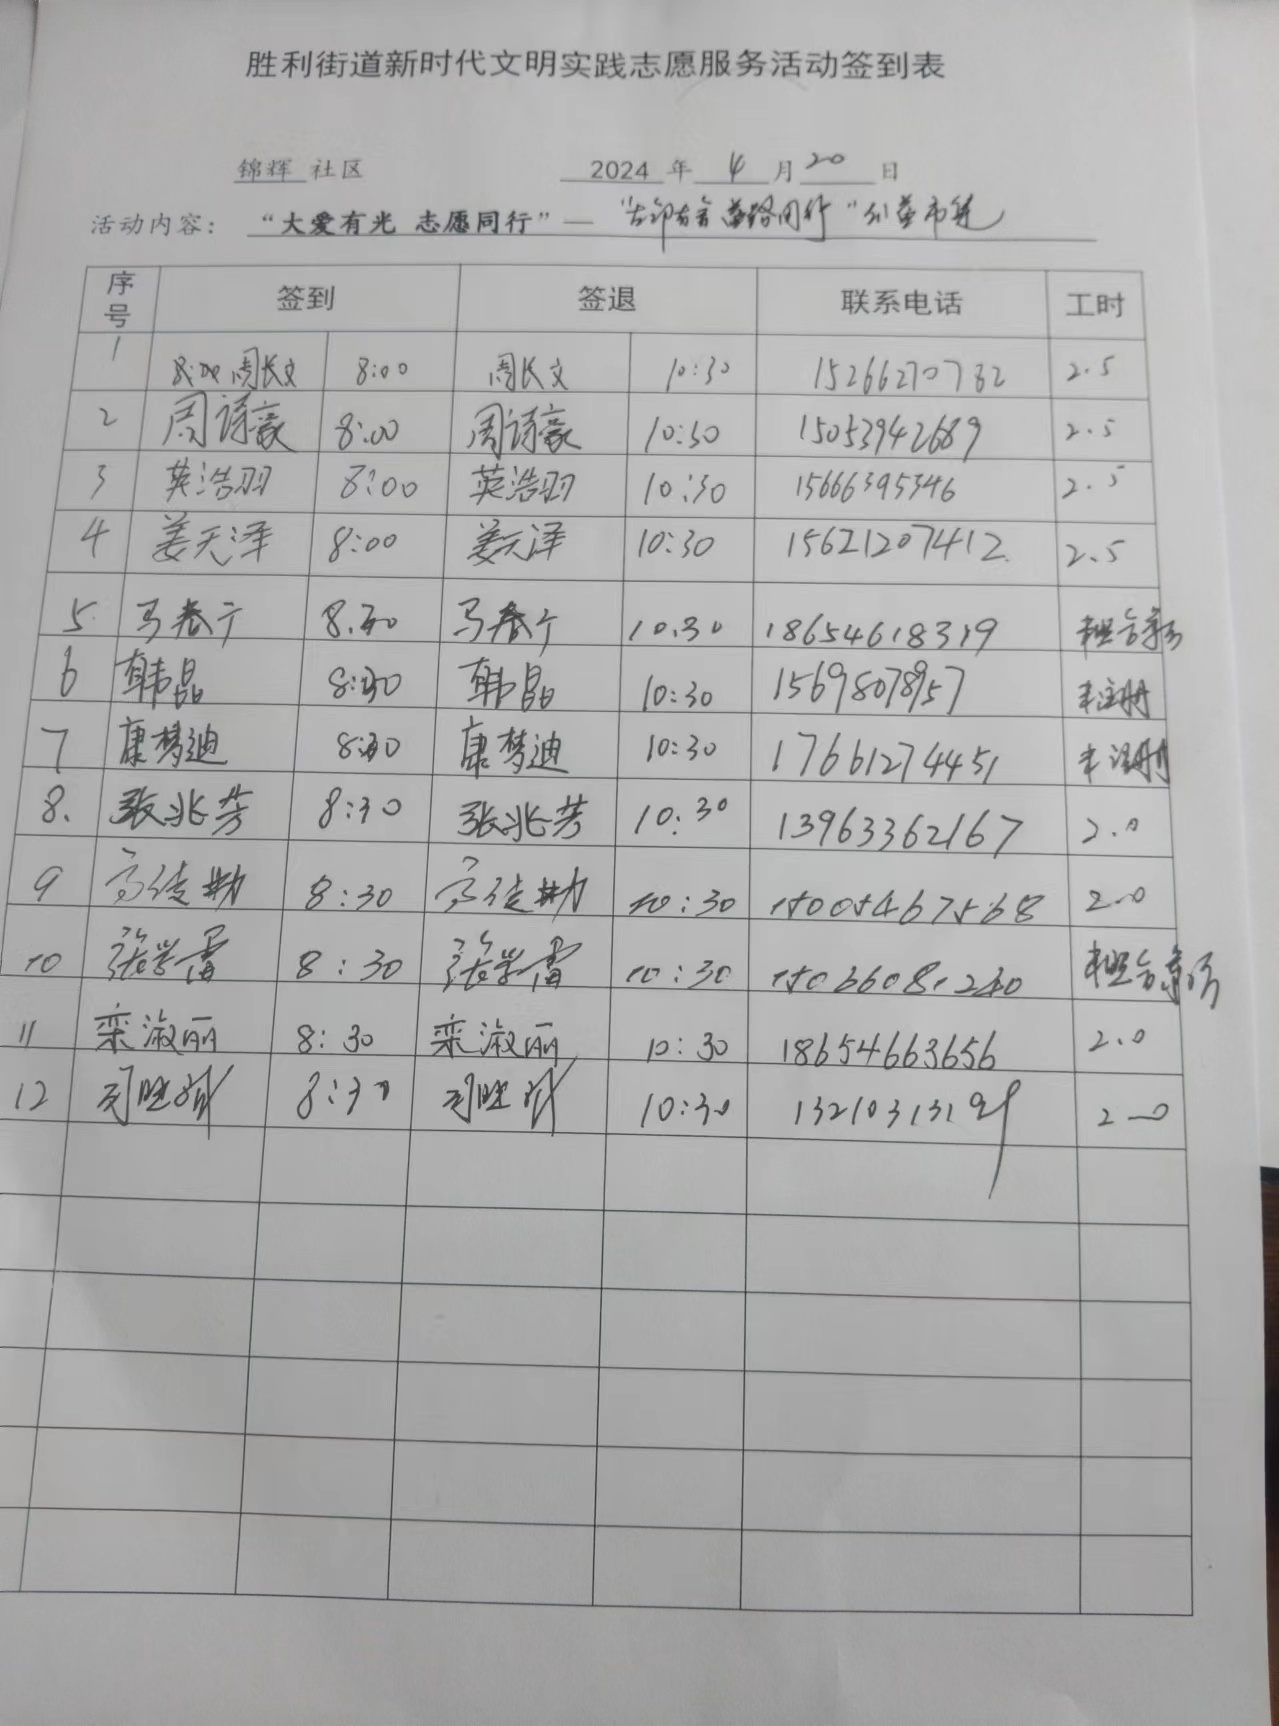 胜利街道新时代文明实践志愿服务活动签到表
锦辉 社区 2024 年 4 月 20 日
活动内容： “大爱有光 志愿同行”—
序号 签到 签退 联系电话 工时
1 周长文 8:00 周长文 10:30 15266270732 2.5
2 周诗豪 8:00 周诗豪 10:30 15053942689 2.5
3 英浩羽 8:00 英浩羽 10:30 15666395346 2.5
4 姜天泽 8:00 姜天泽 10:30 15621207412 2.5
5 马春宁 8.30 马春宁 10.30 18654618319
6 韩晶 8:30 韩晶 10:30 15698078957 未注册
7 康梦迪 8:30 康梦迪 10:30 17661274451 未注册
8. 张兆芳 8:30 张兆芳 10:30 13963362167 2.0
9 8:30 10:30 15005467568 2.0
10 张学雷 8:30 张学雷 10:30 15036081240
11 栾淑丽 8:30 栾淑丽 10:30 18654663656 2.0
12 8:30 10:30 13210313199 2.0